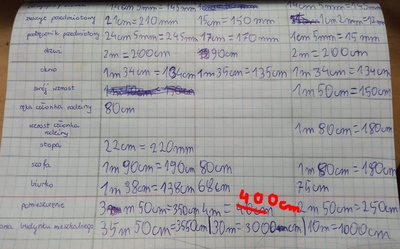 14cm 5mm = 145mm 14cm 5mm = 145mm
zeszyt przedmiotowy 21cm = 210mm 15cm = 150mm 1cm 2mm = 12mm
podręcznik przedmiotowy 24cm 5mm = 245mm 17cm = 170mm 1cm 5mm = 15mm
drzwi 2m = 200cm 90cm 2m = 200cm
okno 1m 34cm = 134cm 1m 35cm = 135cm 1m 34cm = 134cm
swój wzrost 1m 50cm = 150cm
ręka członka rodziny 80cm
wzrost członka rodziny 1m 80cm = 180cm
stopa 22cm = 220mm
szafa 1m 90cm = 190cm 80cm 1m 80cm = 180cm
biurko 1m 38cm = 138cm 68cm 74cm
400cm
pomieszczenie 3m 50cm = 350cm 4m = 40cm 2m 50cm = 250cm
budynku mieszkalnego 35m 50cm = 3550cm 30m = 3000cm 10m = 1000cm